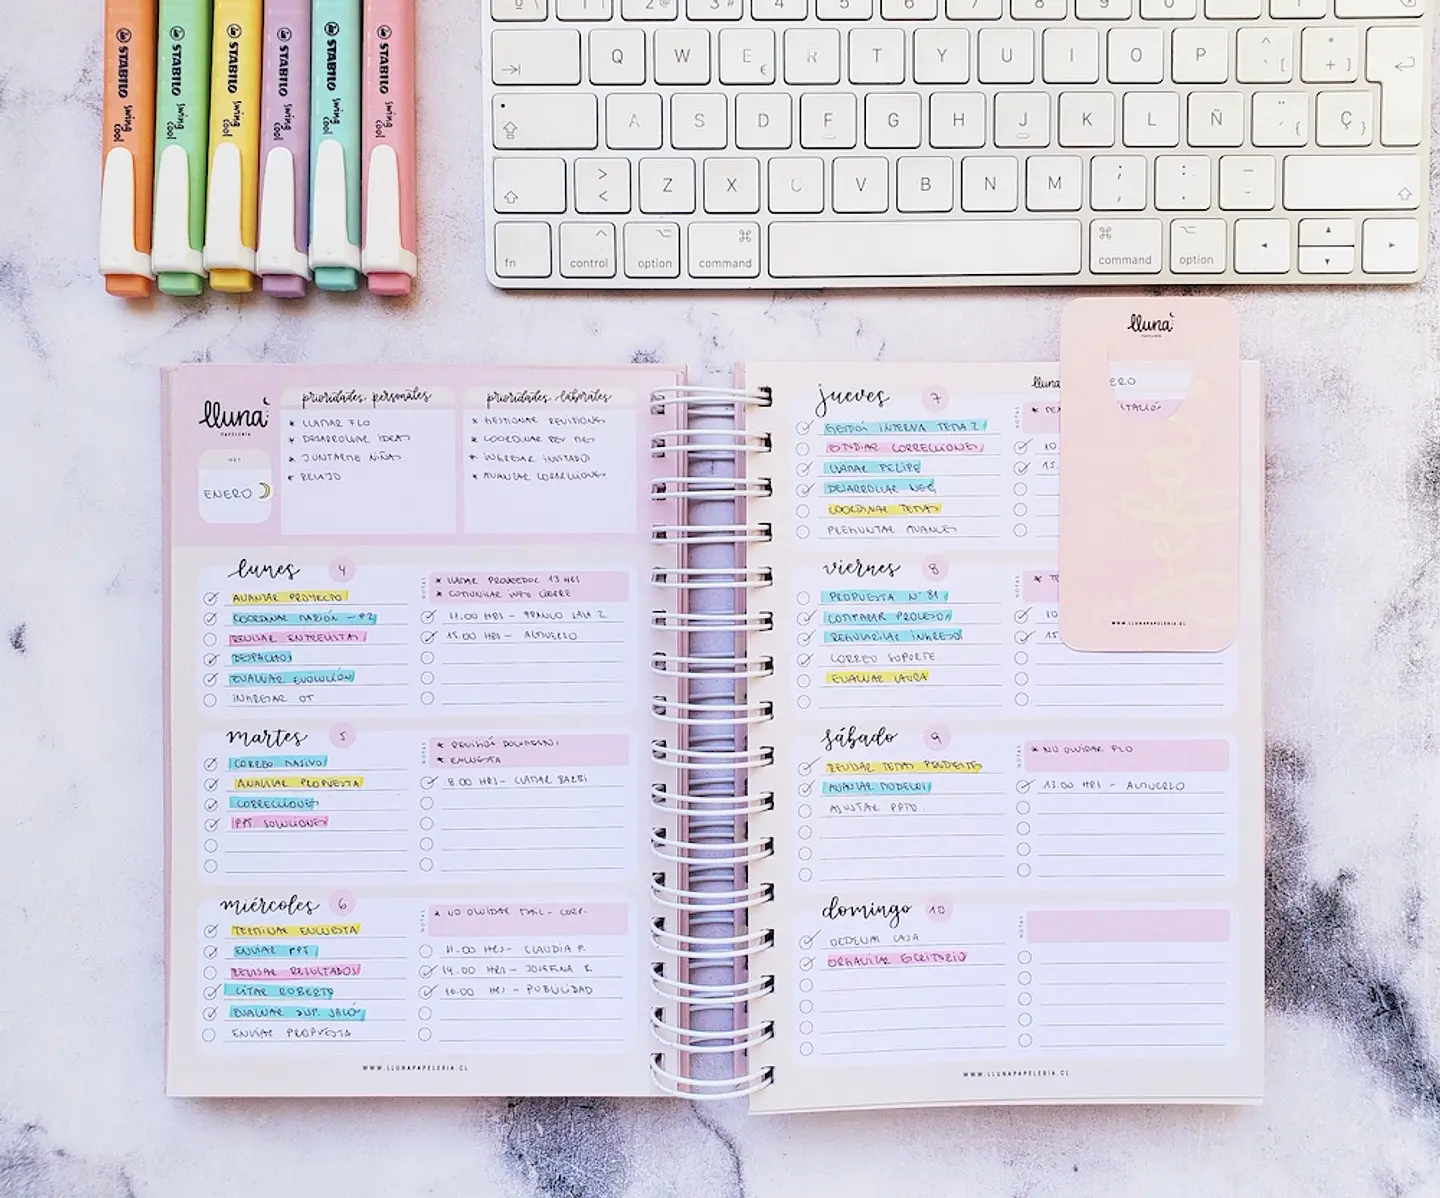 STABILO swing cool
STABILO swing cool
STABILO swing cool
STABILO swing cool
STABILO swing cool
STABILO swing cool
Q W E € R T Y U I O P ^ [ * + ]
A S D F G H J K L Ñ ¨ ´ { Ç }
> < Z X C V B N M ; , : . _ -
fn control option command command option
lluna
PAPELERÍA
MES
ENERO
prioridades personales
* LLAMAR FLO
* DESARROLLAR IDEAS
* JUNTARME NIÑAS
* RELAJO
prioridades laborales
* GESTIONAR REVISIONES
* COORDINAR REV MES
* INGRESAR INVITADOS
* AVANZAR CORRECCIONES
lunes 4
AVANZAR PROYECTO
COORDINAR MARIÓN - PZ
REVISAR ENTREVISTAS
DESPACHOS
EVALUAR EVOLUCIÓN
INGRESAR OT
NOTAS
* LLAMAR PROVEEDOR 13 HRS
* COMUNICAR INFO CIERRE
11.00 HRS -
15.00 HRS - ALMUERZO
martes 5
CORREO MASIVO
ANALIZAR PROPUESTA
CORRECCIONES
PPT SOLUCIONES
NOTAS
* REVISIÓN
* ENCUESTA
8.00 HRS - LLAMAR BARBI
miércoles 6
TERMINAR ENCUESTA
ENVIAR PPT
REVISAR RESULTADOS
CITAR ROBERTO
EVALUAR SUP. JALÓN
ENVIAR PROPUESTA
NOTAS
* NO OLVIDAR MAIL - CORP.
11.00 HRS - CLAUDIA P.
14.00 HRS - JOSEFINA R
16.00 HRS - PUBLICIDAD
WWW.LLUNAPAPELERIA.CL
jueves 7
GESTIÓN INTERNA TEMA 2
ESTUDIAR CORRECCIONES
LLAMAR FELIPE
DESARROLLAR
COORDINAR TEMAS
PREGUNTAR AVANCES
lluna
NOTAS
10.
15.
viernes 8
PROPUESTA N° 81
COMPARAR PROCESOS
REGULARIZAR INGRESOS
CORREO SOPORTE
EVALUAR LAURA
NOTAS
10
15
sábado 9
REVISAR TEMAS PENDIENTES
AVANZAR MODELOS
AJUSTAR PPTO.
NOTAS
* NO OLVIDAR FLO
13.00 HRS - ALMUERZO
domingo 10
ORDENAR CASA
ORGANIZAR ESCRITORIO
NOTAS
WWW.LLUNAPAPELERIA.CL
lluna
PAPELERÍA
ERO
WWW.LLUNAPAPELERIA.CL